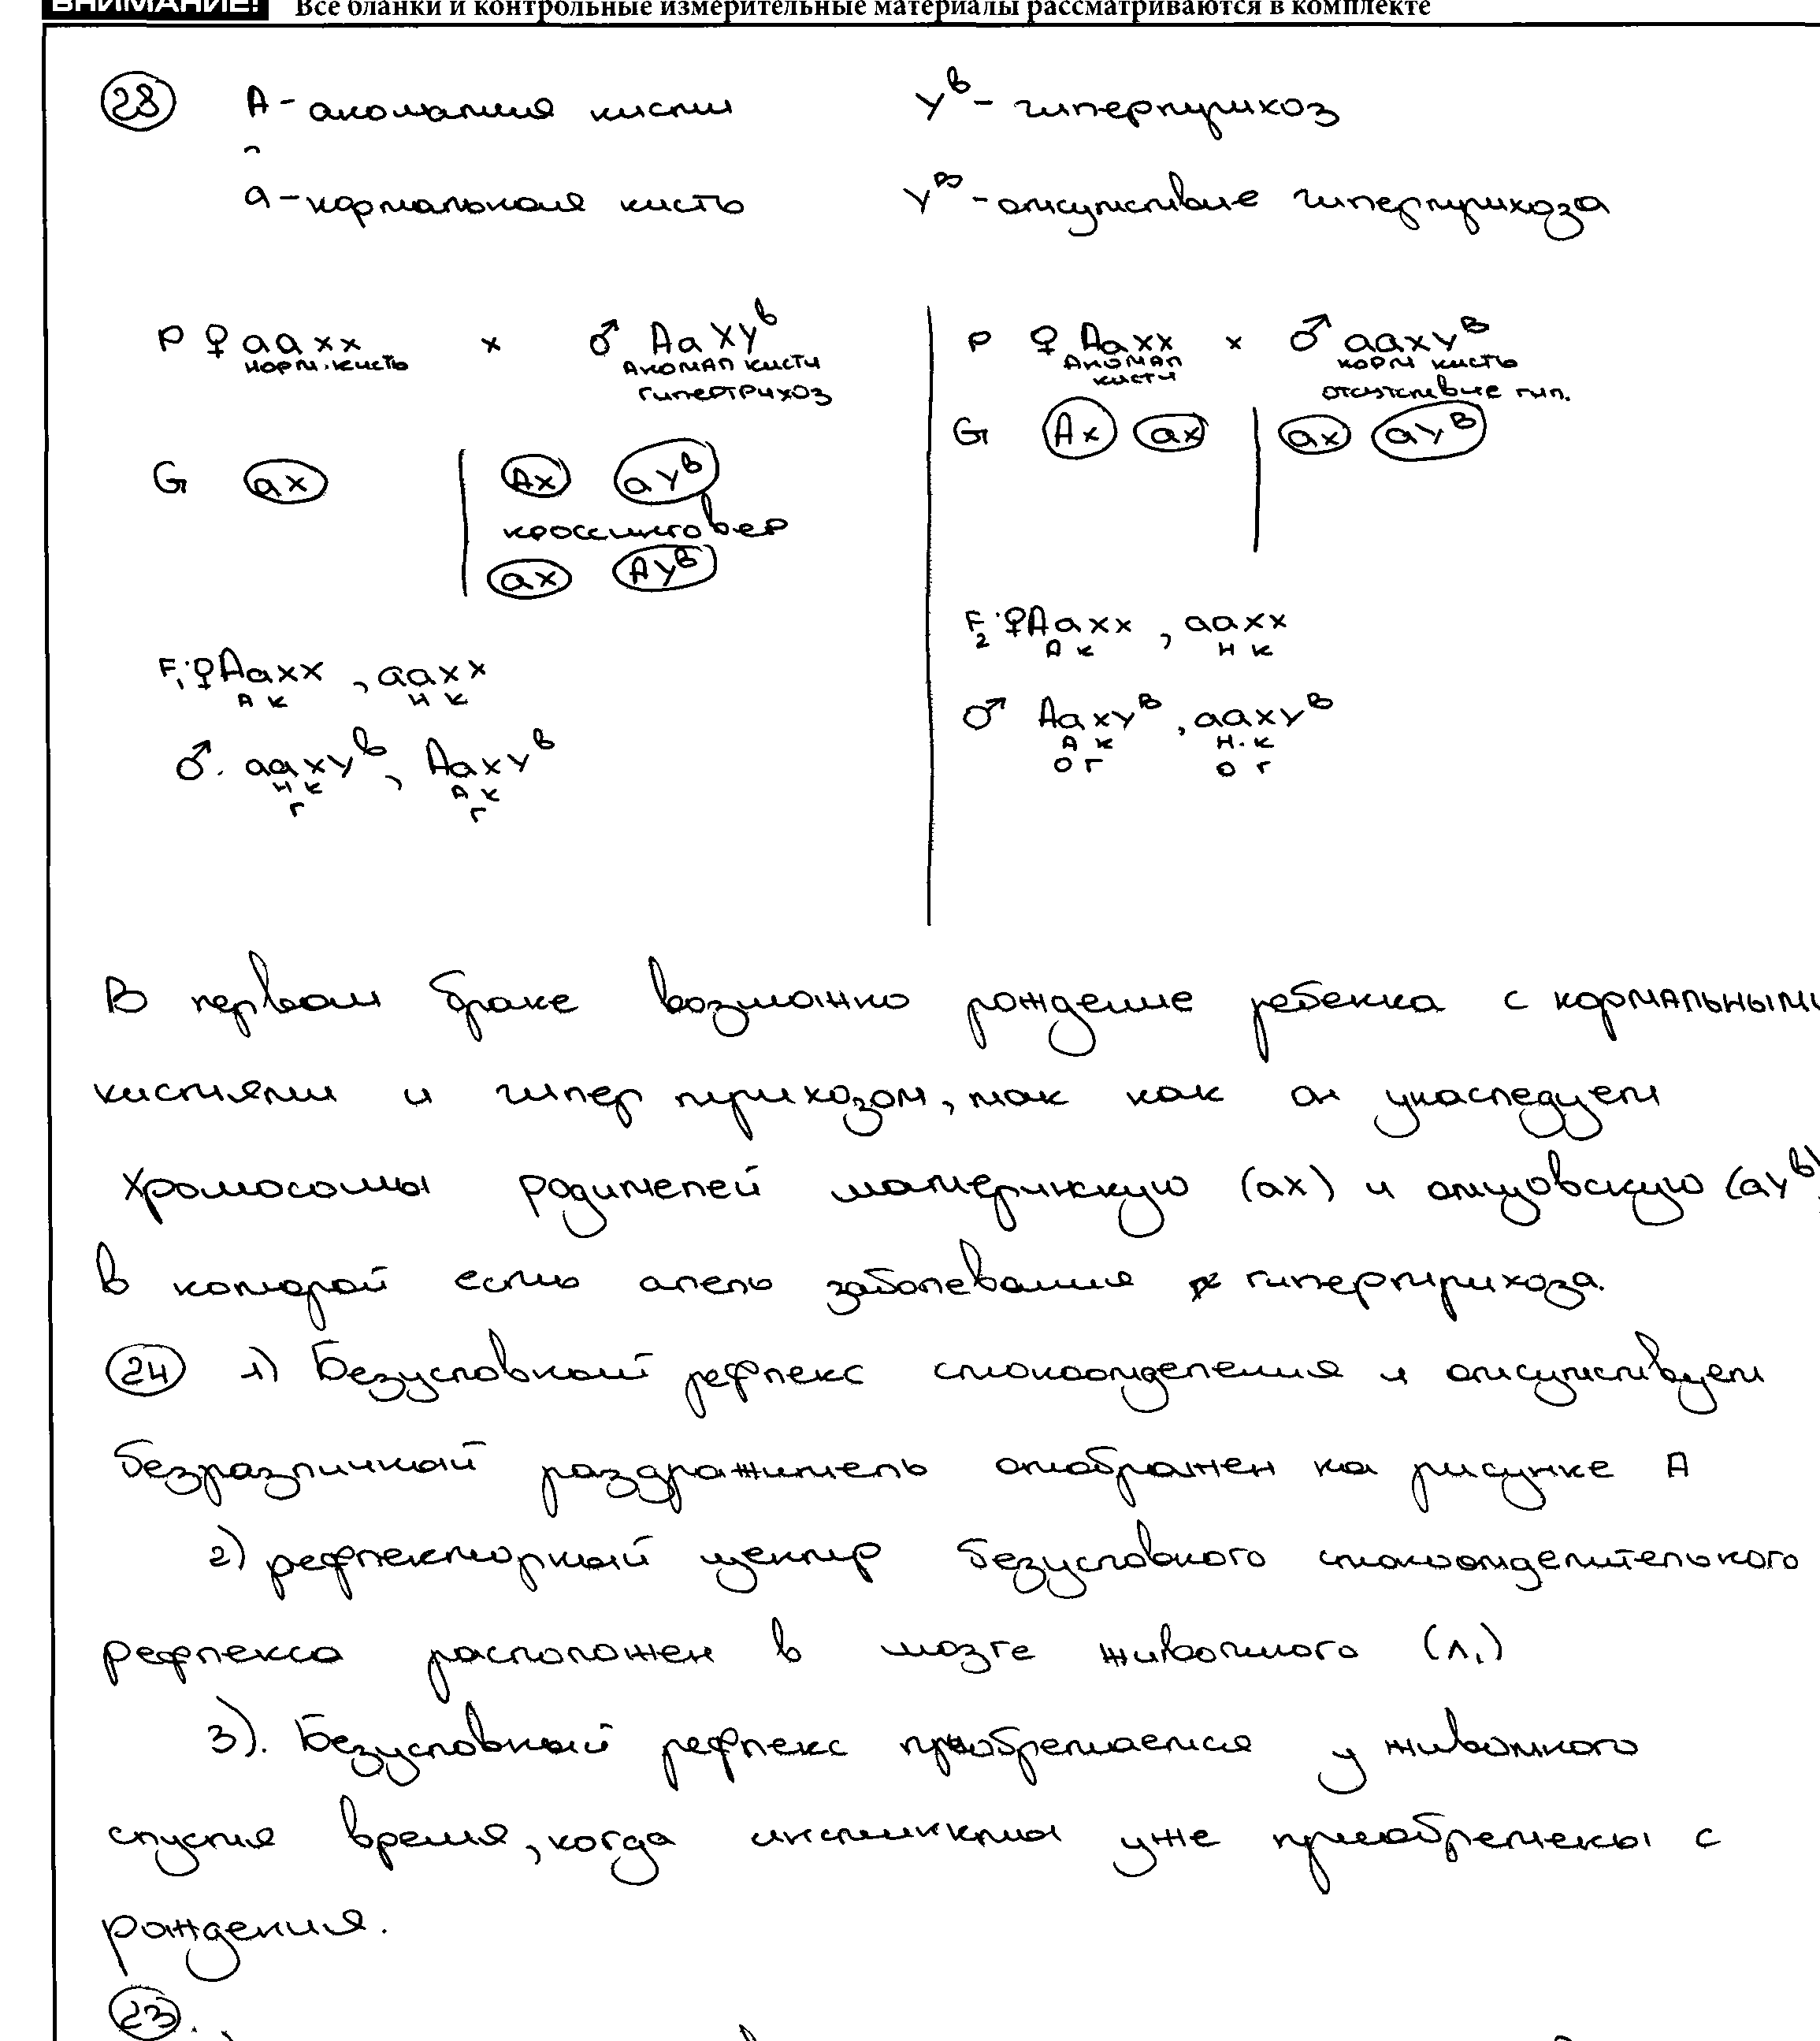 ВНИМАНИЕ! Все бланки и контрольные измерительные материалы рассматриваются в комплекте
28 A - аномалия кисти y^b - гипертрихоз
a - нормальная кисть y^B - отсутствие гипертрихоза
P ♀ aaxx x ♂ AaXy^b
норм. кисть аномал кисти
гипертрихоз
G ax | Ax ay^b
кроссинговер
ax Ay^b
F1: ♀ Aaxx, aaxx
А К Н К
♂. aaxy^b, Aaxy^b
Н К А К
Г Г
P ♀ Aaxx x ♂ aaxy^B
аномал норм кисть
кисти отсутствие гип.
G Ax ax | ax ay^B
F2: ♀ Aaxx, aaxx
А К Н К
♂ Aaxy^B, aaxy^B
А К Н.К
О Г О Г
В первом браке возможно рождение ребенка с нормальными
кистями и гипертрихозом, так как он унаследует
хромосомы родителей материнскую (ax) и отцовскую (ay^b)
в которой есть алель заболевания гипертрихоза.
24 1) Безусловный рефлекс слюноотделения и отсутствует
безразличный раздражитель отображен на рисунке А
2) рефлекторный центр безусловного слюноотделительного
рефлекса расположен в мозге животного (л1)
3). Безусловный рефлекс приобретается у животного
спустя время, когда инстинкты уже приобретены с
рождения.
23.